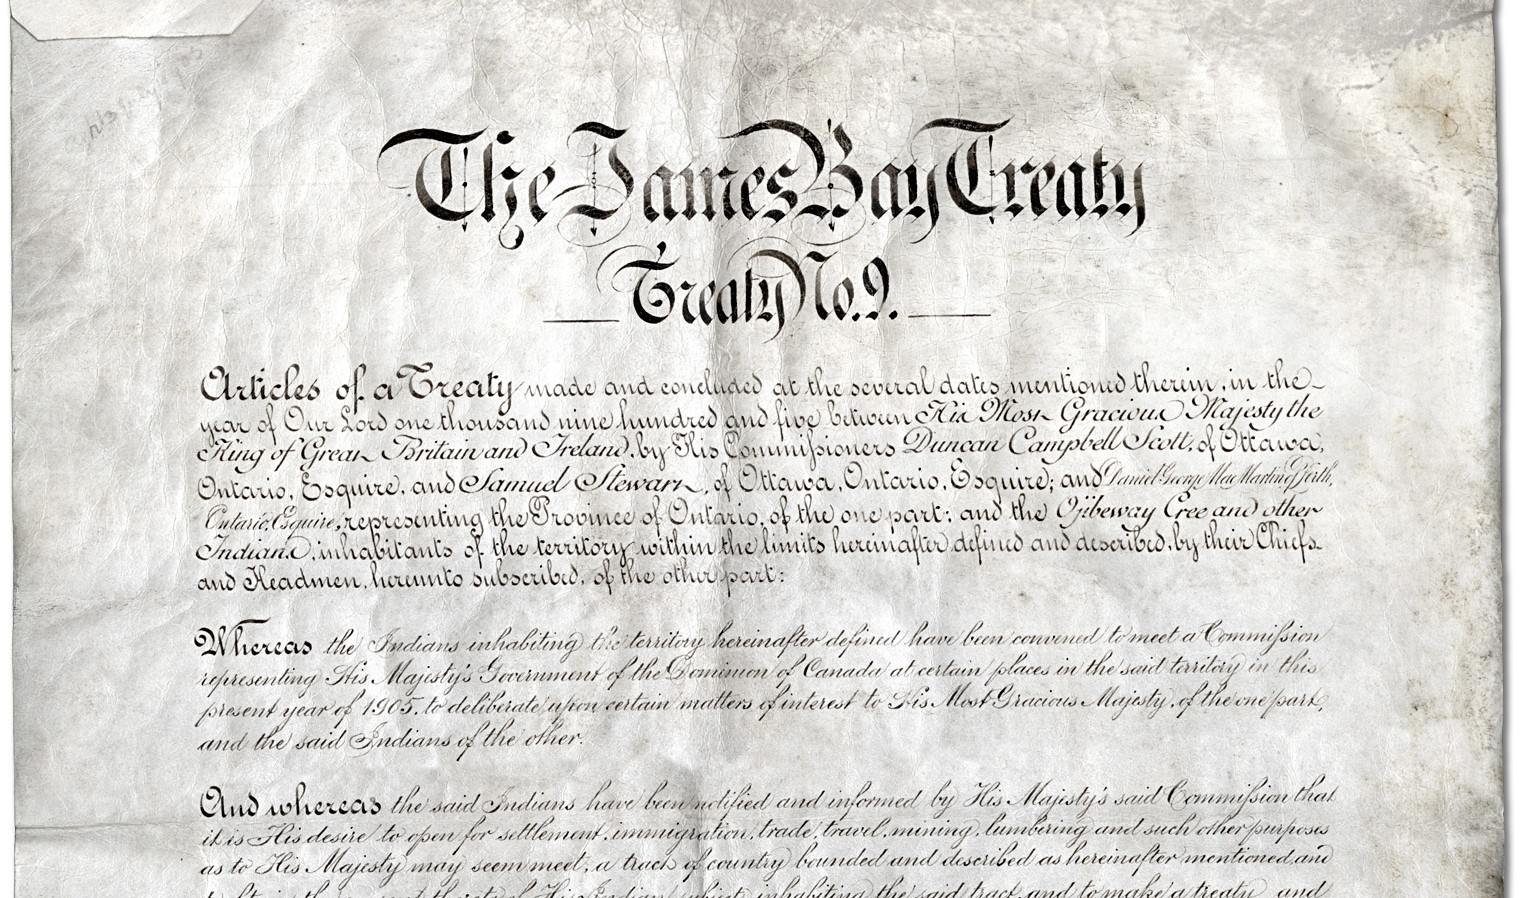 The James Bay Treaty
Treaty No. 9.
Articles of a Treaty made and concluded at the several dates mentioned therein, in the
year of Our Lord one thousand nine hundred and five between His Most Gracious Majesty the
King of Great Britain and Ireland, by His Commissioners Duncan Campbell Scott, of Ottawa,
Ontario, Esquire, and Samuel Stewart, of Ottawa, Ontario, Esquire; and Daniel George MacMartin of Perth,
Ontario, Esquire, representing the Province of Ontario, of the one part; and the Ojibeway Cree and other
Indians, inhabitants of the territory within the limits hereinafter defined and described, by their Chiefs
and Headmen, hereunto subscribed, of the other part:
Whereas the Indians inhabiting the territory hereinafter defined have been convened to meet a Commission
representing His Majesty's Government of the Dominion of Canada at certain places in the said territory in this
present year of 1905, to deliberate upon certain matters of interest to His Most Gracious Majesty, of the one part,
and the said Indians of the other.
And whereas the said Indians have been notified and informed by His Majesty's said Commission that
it is His desire to open for settlement, immigration, trade, travel, mining, lumbering and such other purposes
as to His Majesty may seem meet, a tract of country bounded and described as hereinafter mentioned, and
His Indian subjects inhabiting the said tract, and to make a treaty and